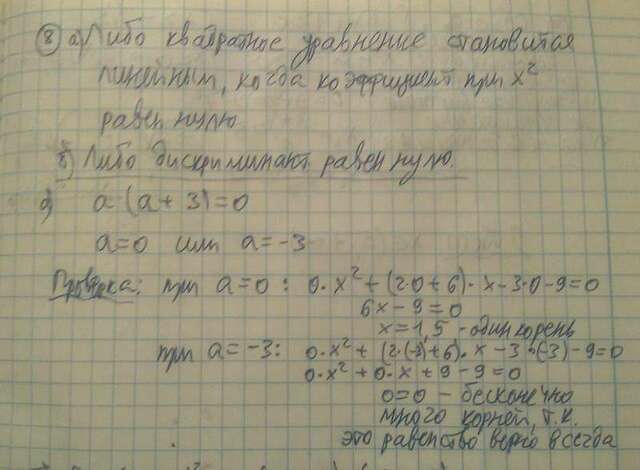 8 а) Либо квадратное уравнение становится
линейным, когда коэффициент при x²
равен нулю
б) Либо дискриминант равен нулю.
а) a·(a+3)=0
a=0 или a=-3
Проверка: при a=0: 0·x²+(2·0+6)·x-3·0-9=0
6x-9=0
x=1,5 - один корень
при a=-3: 0·x²+(2·(-3)+6)·x-3·(-3)-9=0
0·x²+0·x+9-9=0
0=0 - бесконечно
много корней, т.к.
это равенство верно всегда